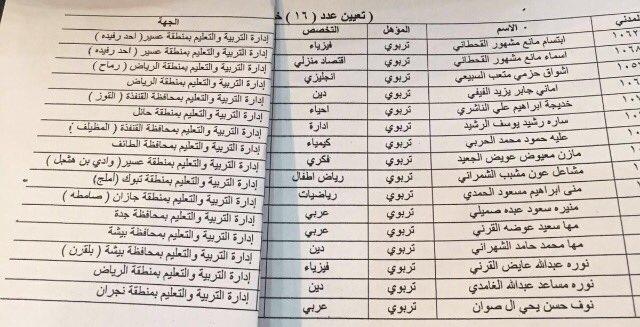 ( تعيين عدد ( ١٦ )
المدني الاسم المؤهل التخصص الجهة
١٠٦٧ ابتسام مانع مشهور القحطاني تربوي فيزياء إدارة التربية والتعليم بمنطقة عسير ( احد رفيده )
١٠٦٨ اسماء مانع مشهور القحطاني تربوي اقتصاد منزلي إدارة التربية والتعليم بمنطقة عسير ( احد رفيده )
اشواق حزمي متعب السبيعي تربوي انجليزي إدارة التربية والتعليم بمنطقة الرياض ( رماح )
اماني جابر يزيد الفيفي تربوي دين إدارة التربية والتعليم بمنطقة الرياض
خديجة ابراهيم علي الناشري تربوي احياء إدارة التربية والتعليم بمحافظة القنفذة ( القوز )
ساره رشيد يوسف الرشيد تربوي ادارة إدارة التربية والتعليم بمنطقة حائل
عليه حمود محمد الحربي تربوي كيمياء إدارة التربية والتعليم بمحافظة القنفذة ( المظيلف )
مازن معيوض عويض الجعيد تربوي فكري إدارة التربية والتعليم بمحافظة الطائف
مشاعل عون مشبب الشمراني تربوي رياض اطفال إدارة التربية والتعليم بمنطقة عسير ( وادي بن هشبل )
منى ابراهيم مسعود الحمدي تربوي رياضيات إدارة التربية والتعليم بمنطقة تبوك ( أملج )
منيره سعود عبده صميلي تربوي عربي إدارة التربية والتعليم بمنطقة جازان ( صامطه )
مها سعيد عوضه القرني تربوي عربي إدارة التربية والتعليم بمحافظة جدة
مها محمد حامد الشهراني تربوي دين إدارة التربية والتعليم بمحافظة بيشة
نوره عبدالله عايض القرني تربوي فيزياء إدارة التربية والتعليم بمحافظة بيشة ( بلقرن )
نوره مساعد عبدالله الغامدي تربوي دين إدارة التربية والتعليم بمنطقة الرياض
نوف حسن يحي ال صوان تربوي عربي إدارة التربية والتعليم بمنطقة نجران